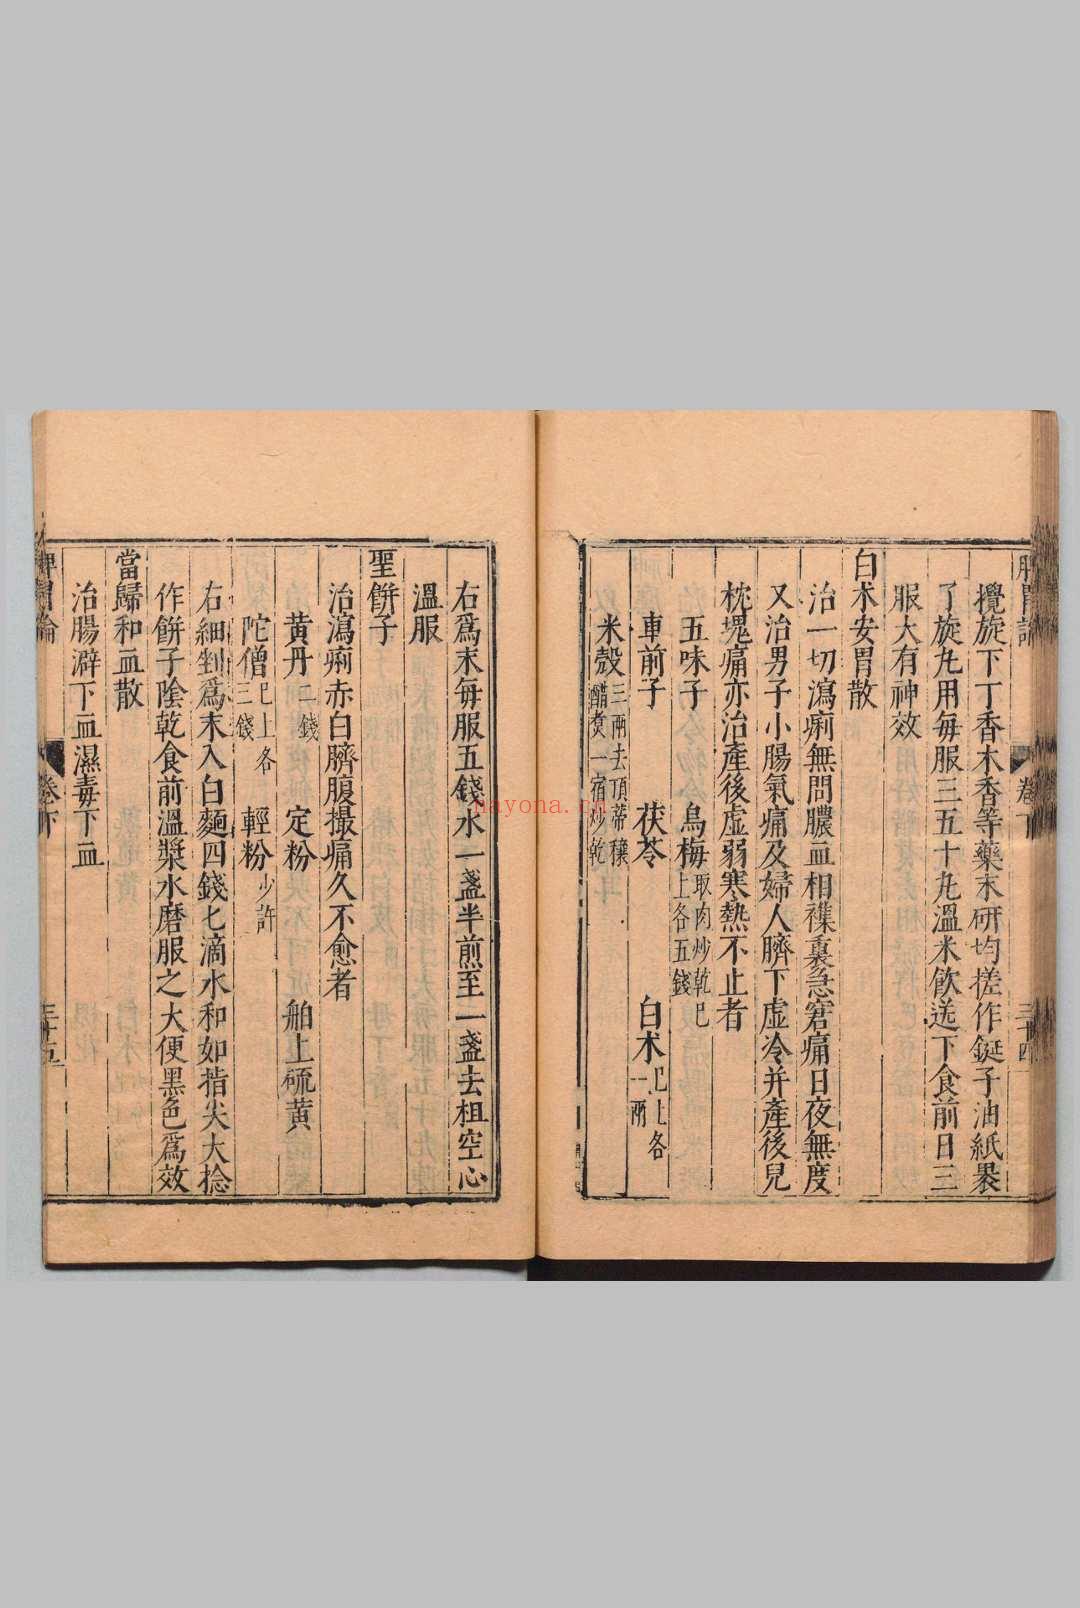 脾胃論 卷下 三十四
攪旋下丁香木香等藥末研均搓作鋌子油紙裹
了旋丸用每服三五十丸溫米飲送下食前日三
服大有神效
白朮安胃散
治一切瀉痢無問膿血相襍裏急窘痛日夜無度
又治男子小腸氣痛及婦人臍下虛冷并產後兒
枕塊痛亦治產後虛弱寒熱不止者
五味子 烏梅取肉炒乾已上各五錢
車前子 茯苓 白朮已上各一兩
米殼三兩去頂蒂穰醋煑一宿炒乾
右爲末每服五錢水一盞半煎至一盞去柤空心
溫服
聖餅子
治瀉痢赤白臍腹撮痛久不愈者
黃丹二錢 定粉 舶上硫黃
陀僧已上各三錢 輕粉少許
右細剉爲末入白麵四錢匕滴水和如指尖大捻
作餅子陰乾食前溫漿水磨服之大便黑色爲效
當歸和血散
治腸澼下血濕毒下血
脾胃論 卷下 三十五
nayona.cn